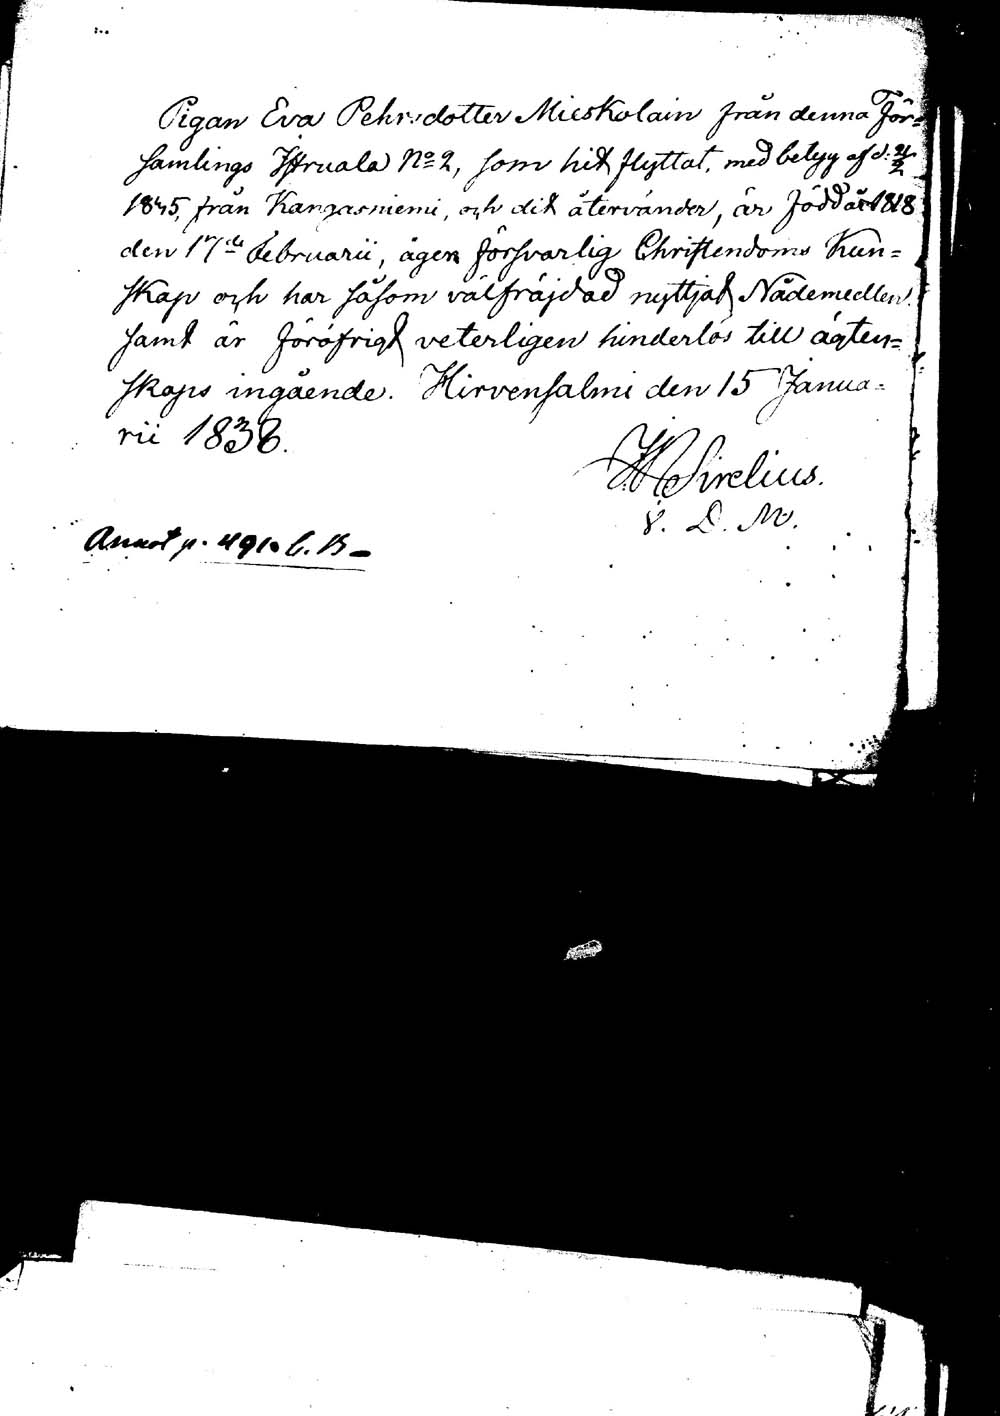 Pigan Eva Pehrsdotter Mieskolain från denna För=
samlings Hruala No 2, som hit flyttat, med betyg af d. 21/2
1835, från Kangasniemi, och dit återvänder, är född år 1818
den 17de Februarii, äger försvarlig Christendoms Kun=
skap och har såsom välfräjdad nyttjat Nådemedlen
samt är föröfrigt veterligen hinderlös till ägten=
skaps ingående. Hirvensalmi den 15 Janua=
rii 1838.
Sirelius.
V. D. M.
Annot p. 491 C. B.